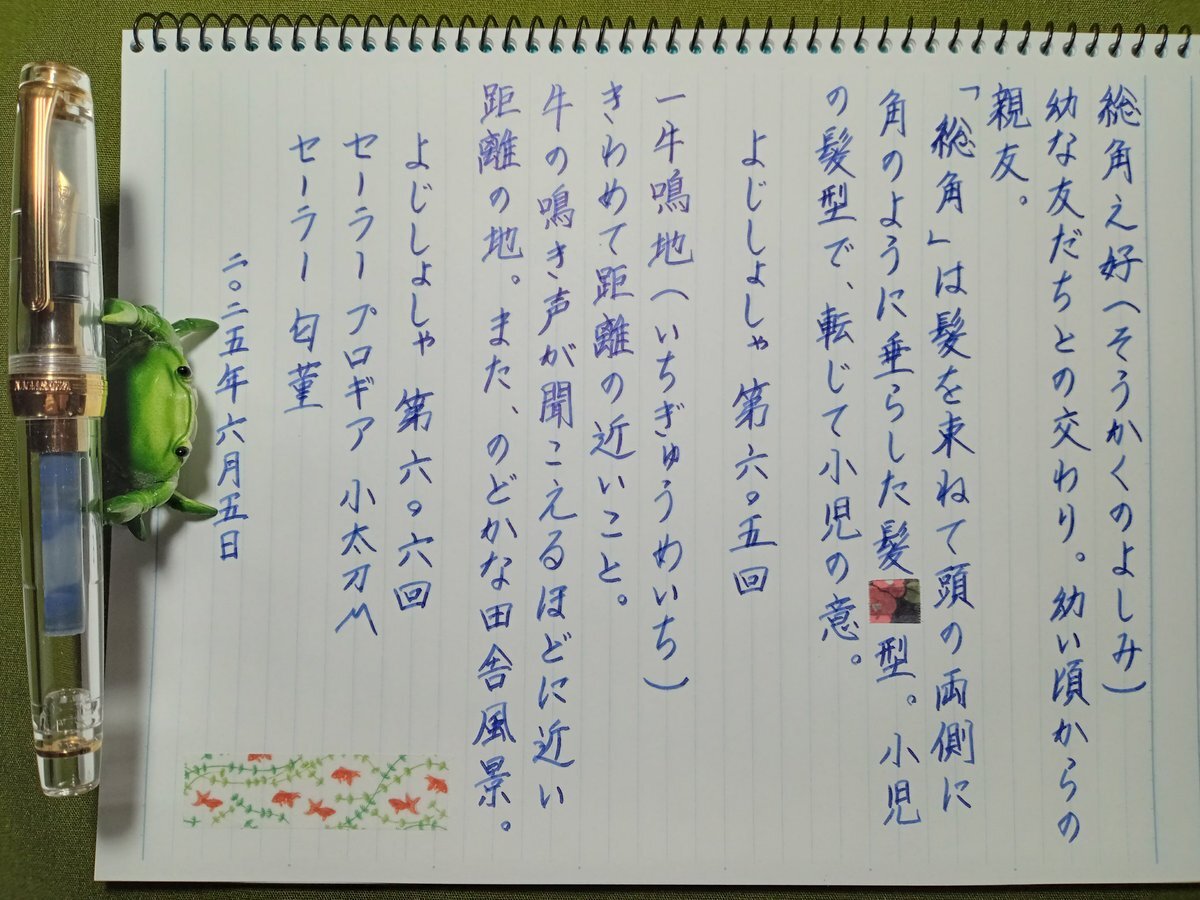 総角え好(そうかくのよしみ)
幼な友だちとの交わり。幼い頃からの
親友。
「総角」は髪を束ねて頭の両側に
角のように垂らした髪型。小児
の髪型で、転じて小児の意。
よじしよしゃ 第六〇五回
一牛鳴地(いちぎゅうめいち)
きわめて距離の近いこと。
牛の鳴き声が聞こえるほどに近い
距離の地。また、のどかな田舎風景。
よじしよしゃ 第六〇六回
セーラー プロギア 小太刀M
セーラー 匂菫
二〇二五年六月五日